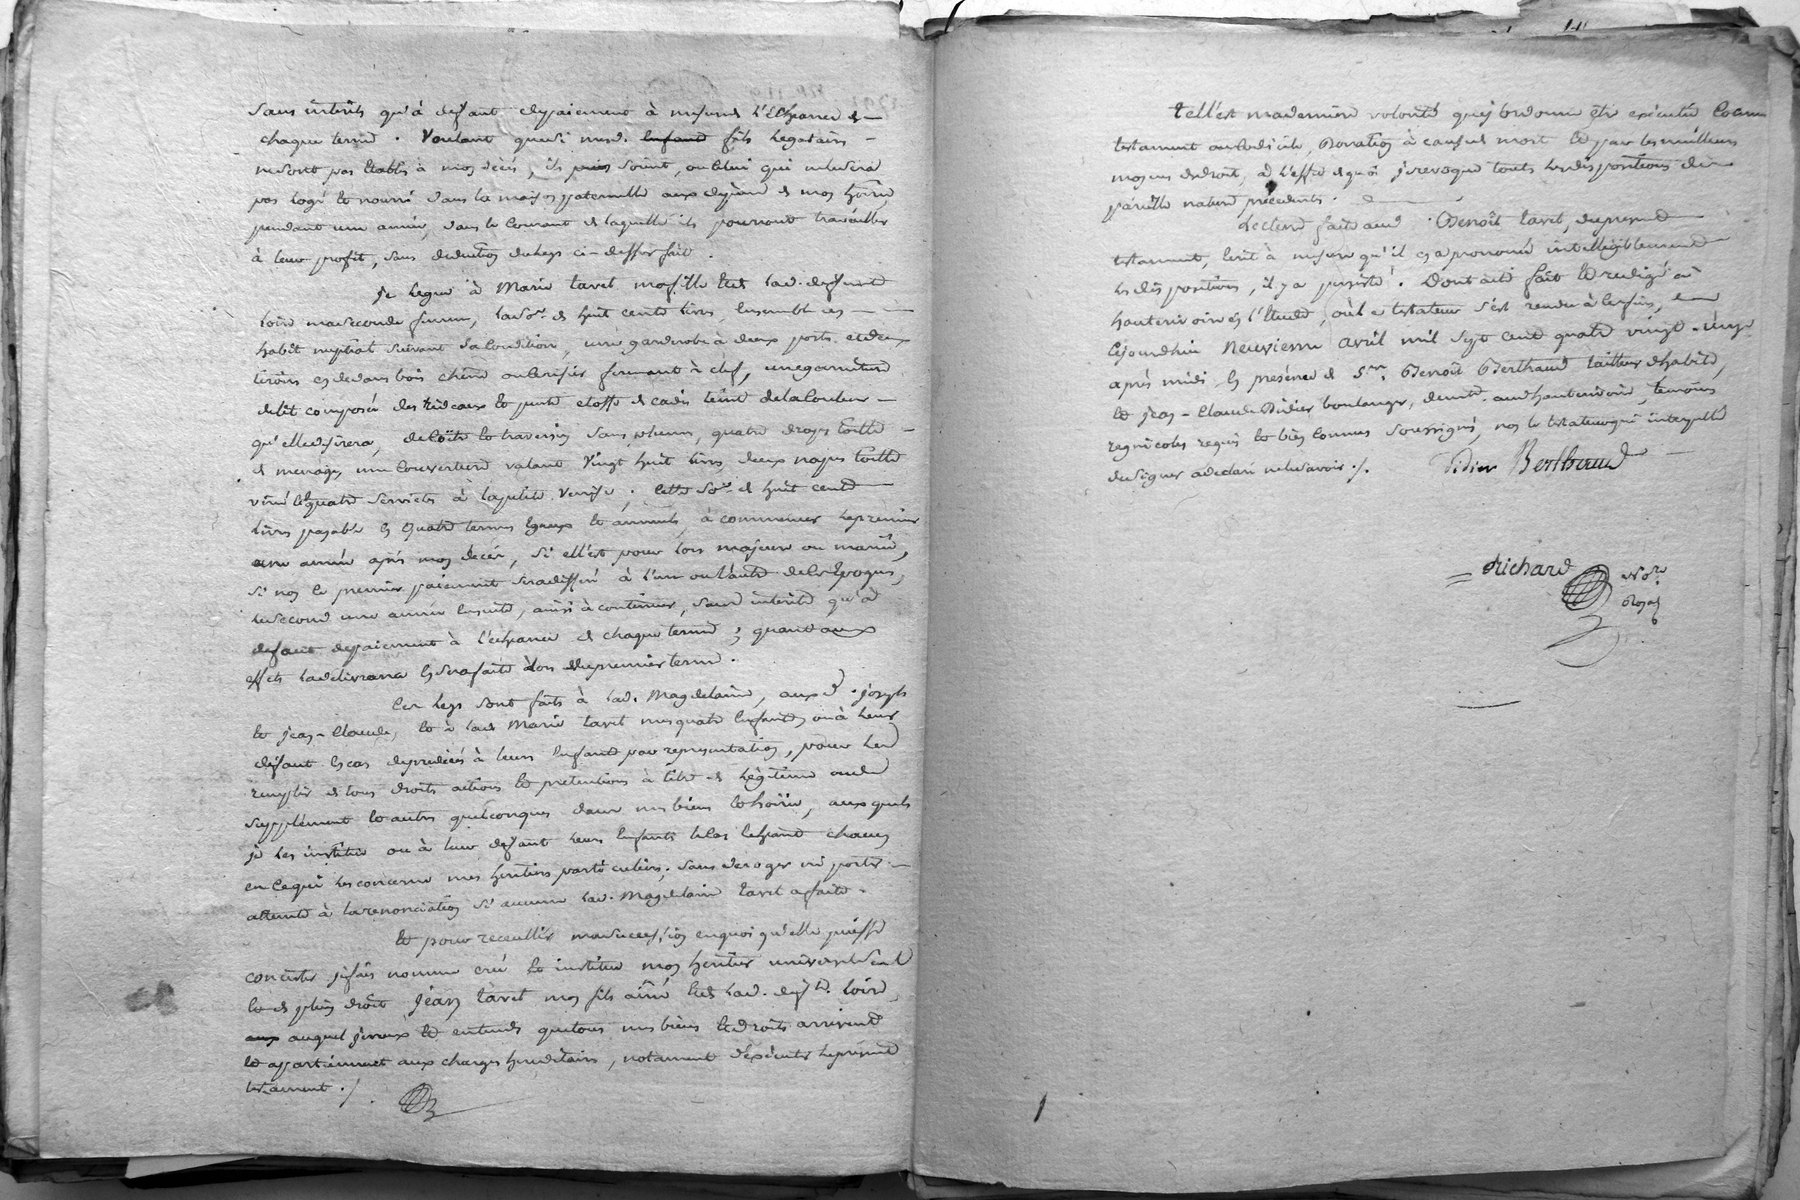 sans intérêts qu'à défaut de paiement à mesure de l'échéance de
chaque terme. Voulant que si mesd. enfant fils légataires
ne sont pas établis à mon décès, ils soint, ou celui qui ne le sera
pas logé et nourri dans la maison paternelle aux dépens de mon hoirie
pendant une année, dans le courant de laquelle ils pourront travailler
à leur profit, sans deduction du legs ci-dessus fait.
Je legue à Marie tavet ma fille et de lad. deffunte
loire ma seconde femme, la so.e de huit cents livres, ensemble ses
habit nuptial suivant sa condition, une garderobe à deux portes et deux
tiroirs en dedans bois chêne ou cerisier fermant à clef, une garniture
de lit composée des rideaux et pente etoffe de cadis teint de la couleur
qu'elle desirera, de coëtte et traversin sans plumes, quatre draps toille
de menage, une couverture valant vingt huit livres, deux napes toille
et quatre serviettes à la petite Venise; cette so.e de huit cents
livres payable en quatre termes egaux et annuels, à commencer le premier
une année après mon décès, si ell'est pour lors majeure ou mariée,
si non le premier paiement sera differé à l'une ou l'autre de ces epoques,
le second une année ensuite, ainsi à continuer, sans intérêts qu'à
defaut de paiement à l'echeance de chaque terme; quant aux
effets la delivrance en sera faite lors du premier terme.
Ces legs sont faits à lad. Magdelaine, auxd. joseph
et jean-Claude, et à lade Marie tavet mes quatre enfants, ou à leur
défaut en cas de prédécès à leurs enfants par representation, pour leur
remplir de tous droits actions et pretentions à titre de légitime ou de
supplément et autres quelconques dans mes biens et hoirie, auxquels
je les institue ou à leur defaut leurs enfants le cas echeant chacun
en ce qui les concerne mes heritiers particuliers; sans deroger ni porter
atteinte à la renonciation si aucune lad. Magdelaine tavet a faite.
Et pour receullir ma succession en quoi qu'elle puisse
concister je fais nomme crée et institue mon heritier universel seul
et de plein droit jean tavet mon fils ainé et de lad. defte. loire,
aux auquel je veux et entends que tous mes biens et droits arrivent
et appartiennent aux charges hereditaires, notament d'exécuter le présent
testament ./.
tell'est ma derniere volonté que j'ordonne être exécutée comme
testament ou codicile, Donation à cause de mort et par les meilleurs
moyens de droit, à l'effet de quoi je revoque touts les dispositions de
pareille nature précedents.
Lecture faite aud. Benoît tavet, du present
testament, ecrit à mesure qu'il en a prononcé intelligiblement
les dispositions, il y a persisté. Dont acte fait et redigé à
hauterivoire en l'Etude, où le testateur s'est rendu à ces fins,
cejourdhui neuvieme avril mil sept cent quatre vingt-onze
après midi en présence de srs. Benoît Berthaud tailleur d'habits,
et jean-Claude Didier boulanger, demts. aud hauterivoire, témoins
regnicoles requis et bien connus soussignés, non le testateur qui interpellé
de signer a declaré ne le savoir ./. Didier Berthaud
Richard Nore
Royal